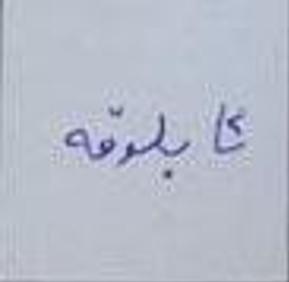 كا بلوقه